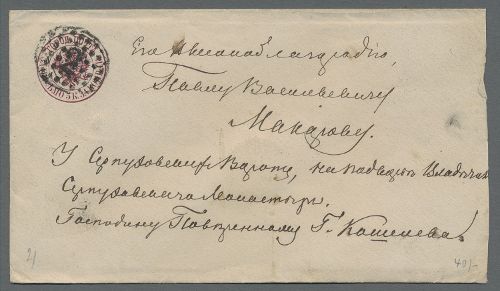 Его Высокоблагородію,
Павлу Васильевичу
Макарову.
У Серпуховскихъ Воротъ, на подворьѣ Владычня
Серпуховскаго Монастыря.
Господину Повѣренному Г. Кошелева.
2/
40/-